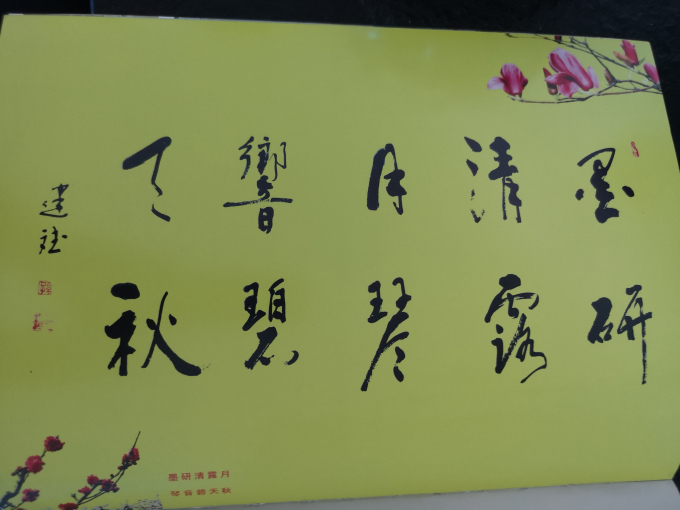 墨研
清露
月琴
響碧
天秋
建斌
墨研清露月
琴音碧天秋